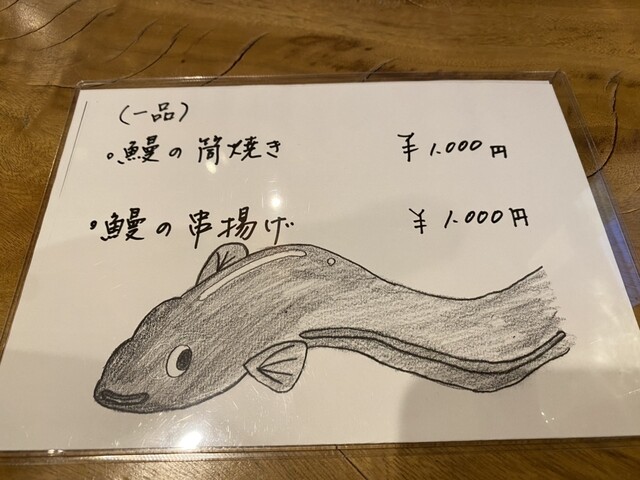 (一品)
・鰻の筒焼き ¥1.000円
・鰻の串揚げ ¥1.000円